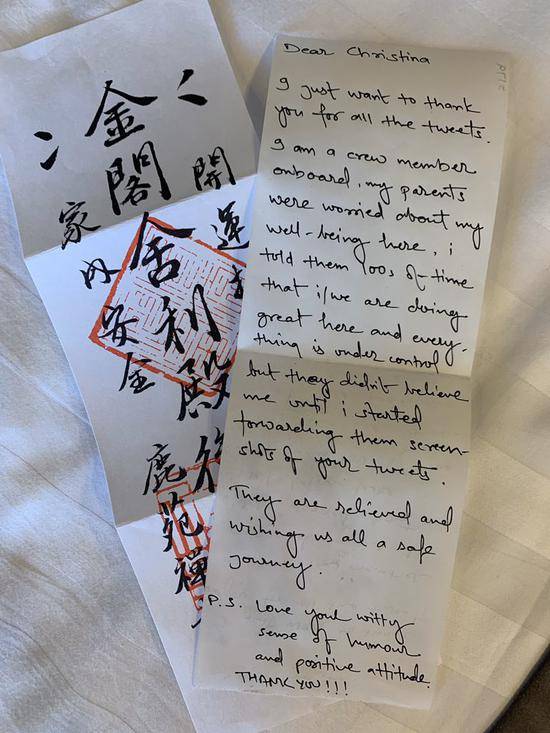 金閣
舍利殿
開
運
家内安全
鹿苑禅
PTO
Dear Christina
I just want to thank
you for all the tweets.
I am a crew member
onboard, my parents
were worried about my
well-being here, i
told them 100s of-time
that i/we are doing
great here and every-
thing is under control
but they didn't believe
me until i started
forwarding them screen-
shots of your tweets.
They are relieved and
wishing us all a safe
journey.
P.S. Love your witty
sense of humour
and positive attitude.
THANK YOU!!!